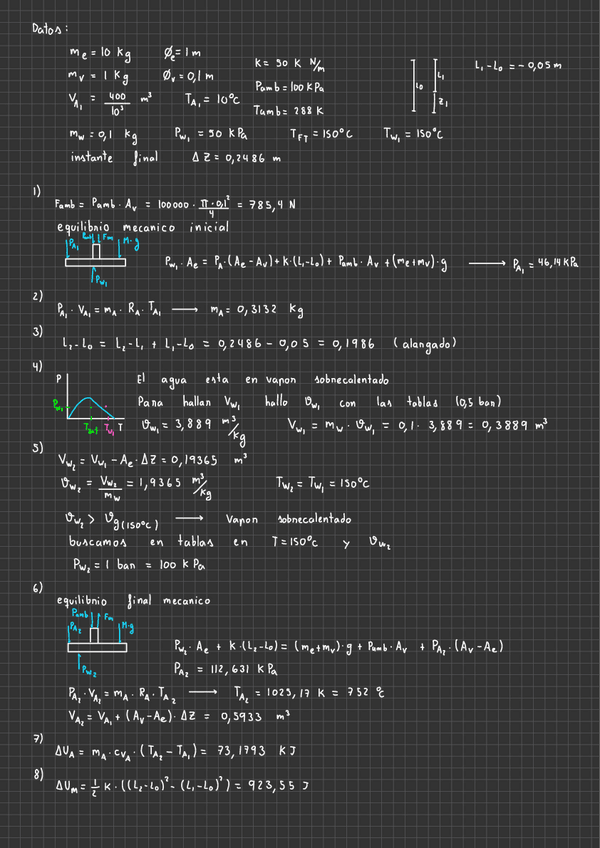 Datos:
m_e = 10 kg   Ø_e = 1 m   K = 50 K N/m   L_0   L_1   Z_1   L_1 - L_0 = -0,05 m
m_v = 1 kg   Ø_v = 0,1 m   P_amb = 100 KPa
V_A1 = 400/10³ m³   T_A1 = 10°C   T_amb = 288 K
m_w = 0,1 kg   P_w1 = 50 KPa   T_FT = 150°C   T_w1 = 150°C
instante final   ΔZ = 0,2486 m
1)
F_amb = P_amb · A_v = 100000 · π·0,1²/4 = 785,4 N
equilibrio mecanico inicial
P_A1   F_m   M·g
P_w1 · A_e = P_A1 · (A_e - A_v) + K·(L_1 - L_0) + P_amb · A_v + (m_e + m_v) · g → P_A1 = 46,14 KPa
P_w1
2)
P_A1 · V_A1 = m_A · R_A · T_A1 → m_A = 0,3132 Kg
3)
L_2 - L_0 = L_2 - L_1 + L_1 - L_0 = 0,2486 - 0,05 = 0,1986 (alargado)
4)
P   P_w1   T_sat   T_w1   T
El agua esta en vapor sobrecalentado
Para hallar V_w1 hallo υ_w1 con las tablas (0,5 bar)
υ_w1 = 3,889 m³/kg   V_w1 = m_w · υ_w1 = 0,1 · 3,889 = 0,3889 m³
5)
V_w2 = V_w1 - A_e · ΔZ = 0,19365 m³
υ_w2 = V_w2/m_w = 1,9365 m³/kg   T_w2 = T_w1 = 150°C
υ_w2 > υ_g(150°C) → Vapor sobrecalentado
buscamos en tablas en T = 150°C y υ_w2
P_w2 = 1 bar = 100 KPa
6)
equilibrio final mecanico
P_amb   P_A2   F_m   M·g
P_w2 · A_e + K · (L_2 - L_0) = (m_e + m_v) · g + P_amb · A_v + P_A2 · (A_v - A_e)
P_w2
P_A2 = 112,631 KPa
P_A2 · V_A2 = m_A · R_A · T_A2 → T_A2 = 1025,17 K = 752 °C
V_A2 = V_A1 + (A_v - A_e) · ΔZ = 0,5933 m³
7)
ΔU_A = m_A · c_VA · (T_A2 - T_A1) = 73,1793 KJ
8)
ΔU_m = 1/2 K · ((L_2 - L_0)² - (L_1 - L_0)²) = 923,55 J